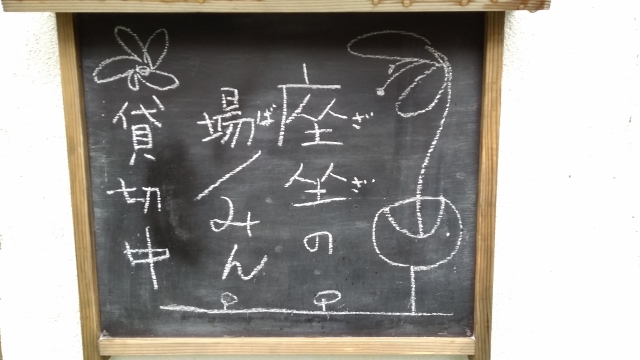 座坐の
ざざ
場/みん
ば
貸切中